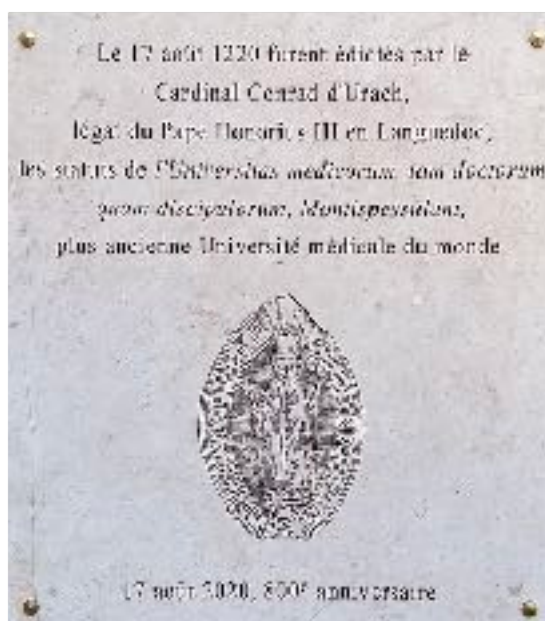 Le 17 août 1220 furent édictés par le
Cardinal Conrad d'Urach,
légat du Pape Honorius III en Languedoc,
les statuts de l'Universitas medicorum, tam doctorum
quam discipulorum, Montispessulani,
plus ancienne Université médicale du monde
17 août 2020, 800e anniversaire